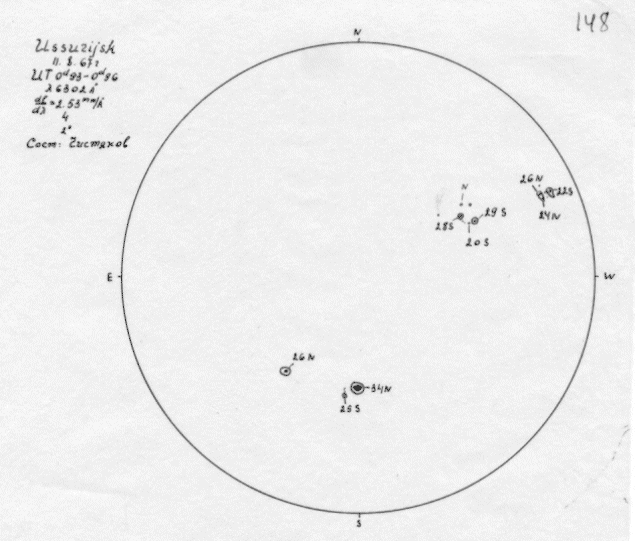 148
Ussurijsk
11. 8. 67г
UT 0ᵈ93-0ᵈ96
λ 6302 Å
= 2.53 mm/Å
4
2"
Сост: Чистяков
N
26 N
22S
24N
N
28S
29 S
20 S
E
W
26 N
34N
25 S
S